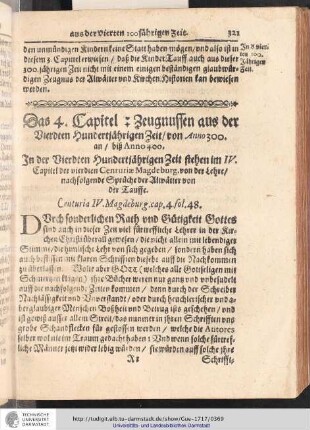 aus der Vierten 300 jährigen Zeit. 321
den unmündigen Kindern keine Statt haben mögen/ und also ist in
diesem 3. Capittel erwiesen / daß die Kinder Tauff auch aus dieser
300. jährigen Zeit nicht mit einem einigen beständigen glaubwür-
digen Zeugnus der Alwäter und Kirchen-Historien kan bewiesen
werden.
In der vier-
ten 300.
Jährigen
Zeit.
Das 4. Capitel : Zeugnussen aus der
Vierdten Hundertjährigen Zeit/ von Anno 300.
an / biß Anno 400.
In der Vierdten Hundertjährigen Zeit stehen im IV.
Capitel der vierdten Centuriæ Magdeburg. von der Lehre/
nachfolgende Sprüche der Altväter von
der Tauffe.
Centuria IV. Magdeburg. cap. 4. fol. 48.
DUrch sonderlichen Rath und Gütigkeit Gottes
sind auch in dieser Zeit viel fürtreffliche Lehrer in der Kir-
chen Christi überall gewesen / die nicht allein mit lebendiger
Stimme/ die himlische Lehr von sich gegeben / sondern haben sich
auch beflissen in Schrifften dieselbe auff die Nachkommen
zu überlassen. Wolte aber GOtt ( welches alle Gottseligen mit
ihre Bücher weren nur gantz und unbesudelt
auff die nachfolgende Zeiten kommen / denn durch der Schreiber
Nachlässigkeit und Unverstand/ oder durch heuchlerischer und a-
berglaubiger Menschen Boßheit und Betrug ists geschehen / und
ist gewiß ausser allem Streit/ das nunmehr in ihren Schrifften viel
grobe Schandflecken für gestossen werden / welche die Autores
selber wol nie im Traum gedacht haben : Und wenn solche fürtreff-
liche Männer jetz wieder lebig würden / sie würden auff solche ihre
Schrifft,
TECHNISCHE
UNIVERSITÄT
DARMSTADT
http://tudigit.ulb.tu-darmstadt.de/show/Gue-1717/0369
Universitäts- und Landesbibliothek Darmstadt